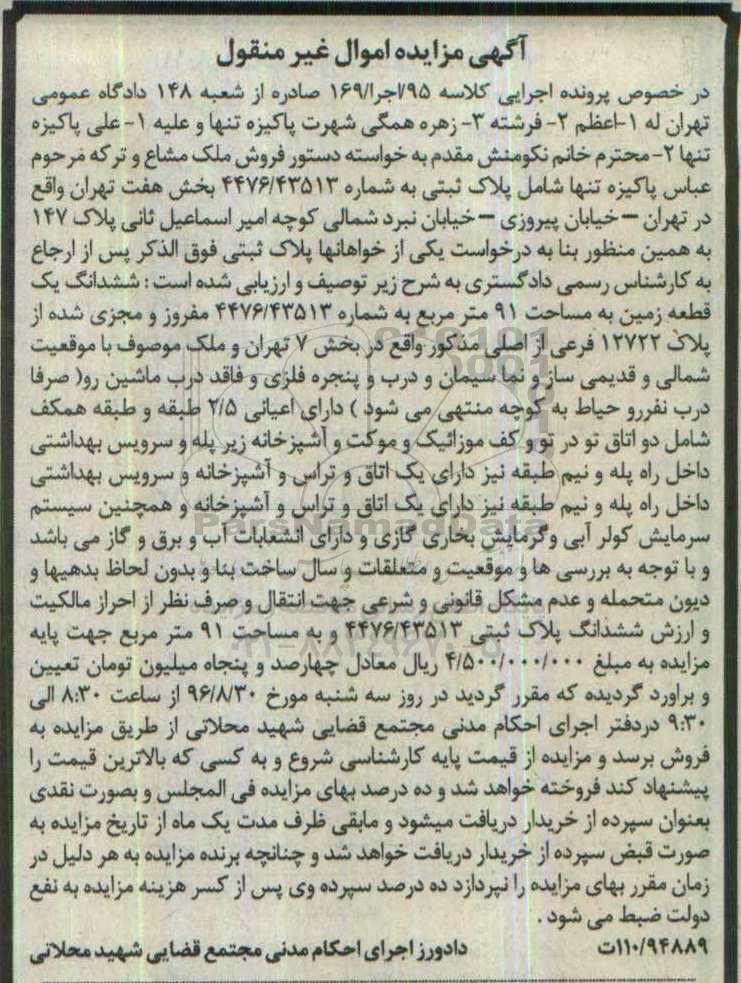 آگهی مزایده اموال غیر منقول
در خصوص پرونده اجرایی کلاسه ۹۵/اجرا/۱۶۹ صادره از شعبه ۱۴۸ دادگاه عمومی
تهران له ۱-اعظم ۲- فرشته ۳- زهره همگی شهرت پاکیزه تنها و علیه ۱- علی پاکیزه
تنها ۲- محترم خانم نکومنش مقدم به خواسته دستور فروش ملک مشاع و ترکه مرحوم
عباس پاکیزه تنها شامل پلاک ثبتی به شماره ۴۴۷۶/۴۳۵۱۳ بخش هفت تهران واقع
در تهران – خیابان پیروزی – خیابان نبرد شمالی کوچه امیر اسماعیل ثانی پلاک ۱۴۷
به همین منظور بنا به درخواست یکی از خواهانها پلاک ثبتی فوق الذکر پس از ارجاع
به کارشناس رسمی دادگستری به شرح زیر توصیف و ارزیابی شده است : ششدانگ یک
قطعه زمین به مساحت ۹۱ متر مربع به شماره ۴۴۷۶/۴۳۵۱۳ مفروز و مجزی شده از
پلاک ۱۲۷۲۲ فرعی از اصلی مذکور واقع در بخش ۷ تهران و ملک موصوف با موقعیت
شمالی و قدیمی ساز و نما سیمان و درب و پنجره فلزی و فاقد درب ماشین رو( صرفا
درب نفررو حیاط به کوچه منتهی می شود ) دارای اعیانی ۲/۵ طبقه و طبقه همکف
شامل دو اتاق تو در تو و کف موزائیک و موکت و آشپزخانه زیر پله و سرویس بهداشتی
داخل راه پله و نیم طبقه نیز دارای یک اتاق و تراس و آشپزخانه و سرویس بهداشتی
داخل راه پله و نیم طبقه نیز دارای یک اتاق و تراس و آشپزخانه و همچنین سیستم
سرمایش کولر آبی وگرمایش بخاری گازی و دارای انشعابات آب و برق و گاز می باشد
و با توجه به بررسی ها و موقعیت و متعلقات و سال ساخت بنا و بدون لحاظ بدهیها و
دیون متحمله و عدم مشکل قانونی و شرعی جهت انتقال و صرف نظر از احراز مالکیت
و ارزش ششدانگ پلاک ثبتی ۴۴۷۶/۴۳۵۱۳ و به مساحت ۹۱ متر مربع جهت پایه
مزایده به مبلغ ۴/۵۰۰/۰۰۰/۰۰۰ ریال معادل چهارصد و پنجاه میلیون تومان تعیین
و براورد گردیده که مقرر گردید در روز سه شنبه مورخ ۹۶/۸/۳۰ از ساعت ۸:۳۰ الی
۹:۳۰ دردفتر اجرای احکام مدنی مجتمع قضایی شهید محلاتی از طریق مزایده به
فروش برسد و مزایده از قیمت پایه کارشناسی شروع و به کسی که بالاترین قیمت را
پیشنهاد کند فروخته خواهد شد و ده درصد بهای مزایده فی المجلس و بصورت نقدی
بعنوان سپرده از خریدار دریافت میشود و مابقی ظرف مدت یک ماه از تاریخ مزایده به
صورت قبض سپرده از خریدار دریافت خواهد شد و چنانچه برنده مزایده به هر دلیل در
زمان مقرر بهای مزایده را نپردازد ده درصد سپرده وی پس از کسر هزینه مزایده به نفع
دولت ضبط می شود .
۱۱۰/۹۴۸۸۹ت دادورز اجرای احکام مدنی مجتمع قضایی شهید محلاتی
ParsNamadData